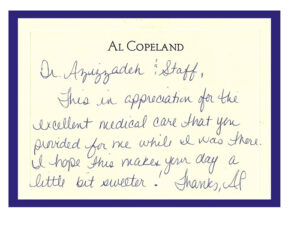 AL COPELAND
Dr. Azizzadeh & Staff,
This in appreciation for the
excellent medical care that you
provided for me while I was there.
I hope this makes your day a
little bit sweeter! Thanks, Al